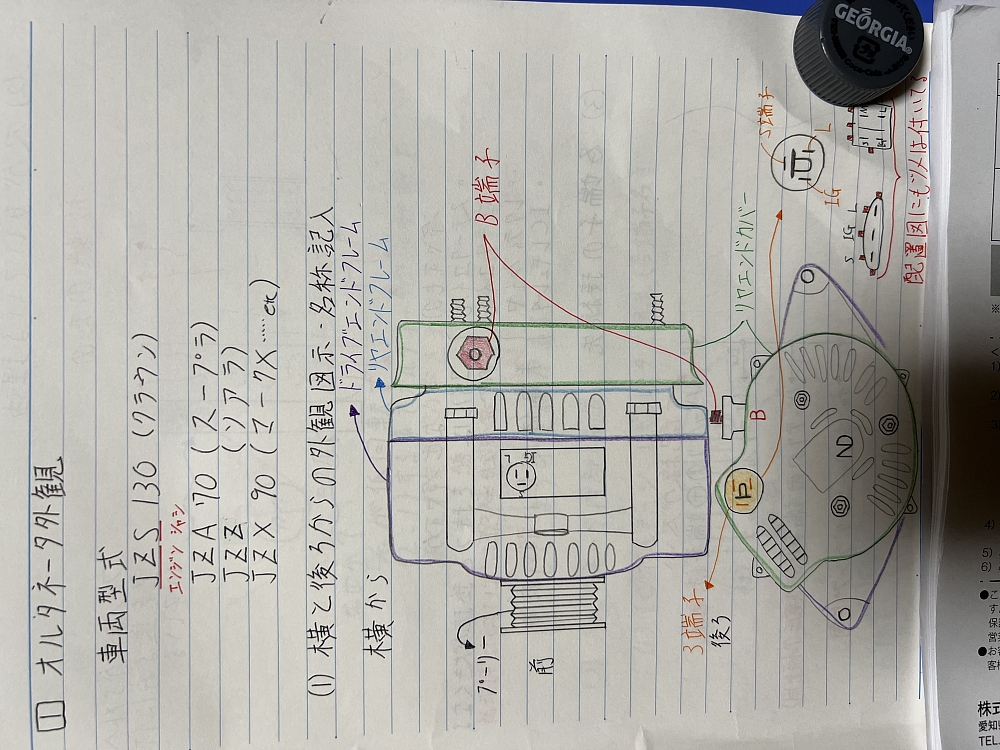 1 オルタネータ外観
車両型式
JZS 130 (クラウン)
エンジン シャシ
JZA 70 (スープラ)
JZZ (ソアラ)
JZX 90 (マークX……etc)
(1) 横と後ろからの外観図示・名称記入
ドライブエンドフレーム
横から
リヤエンドフレーム
B端子
プーリー
前
L
リヤエンドカバー
3端子
後ろ
B
ND
S端子
L
IG
S IG L
配置図にもツメは付いてる
GEORGIA®
※
4)
5)
6)
●こ
す
保
営
●お
客
株式
愛知
TEL